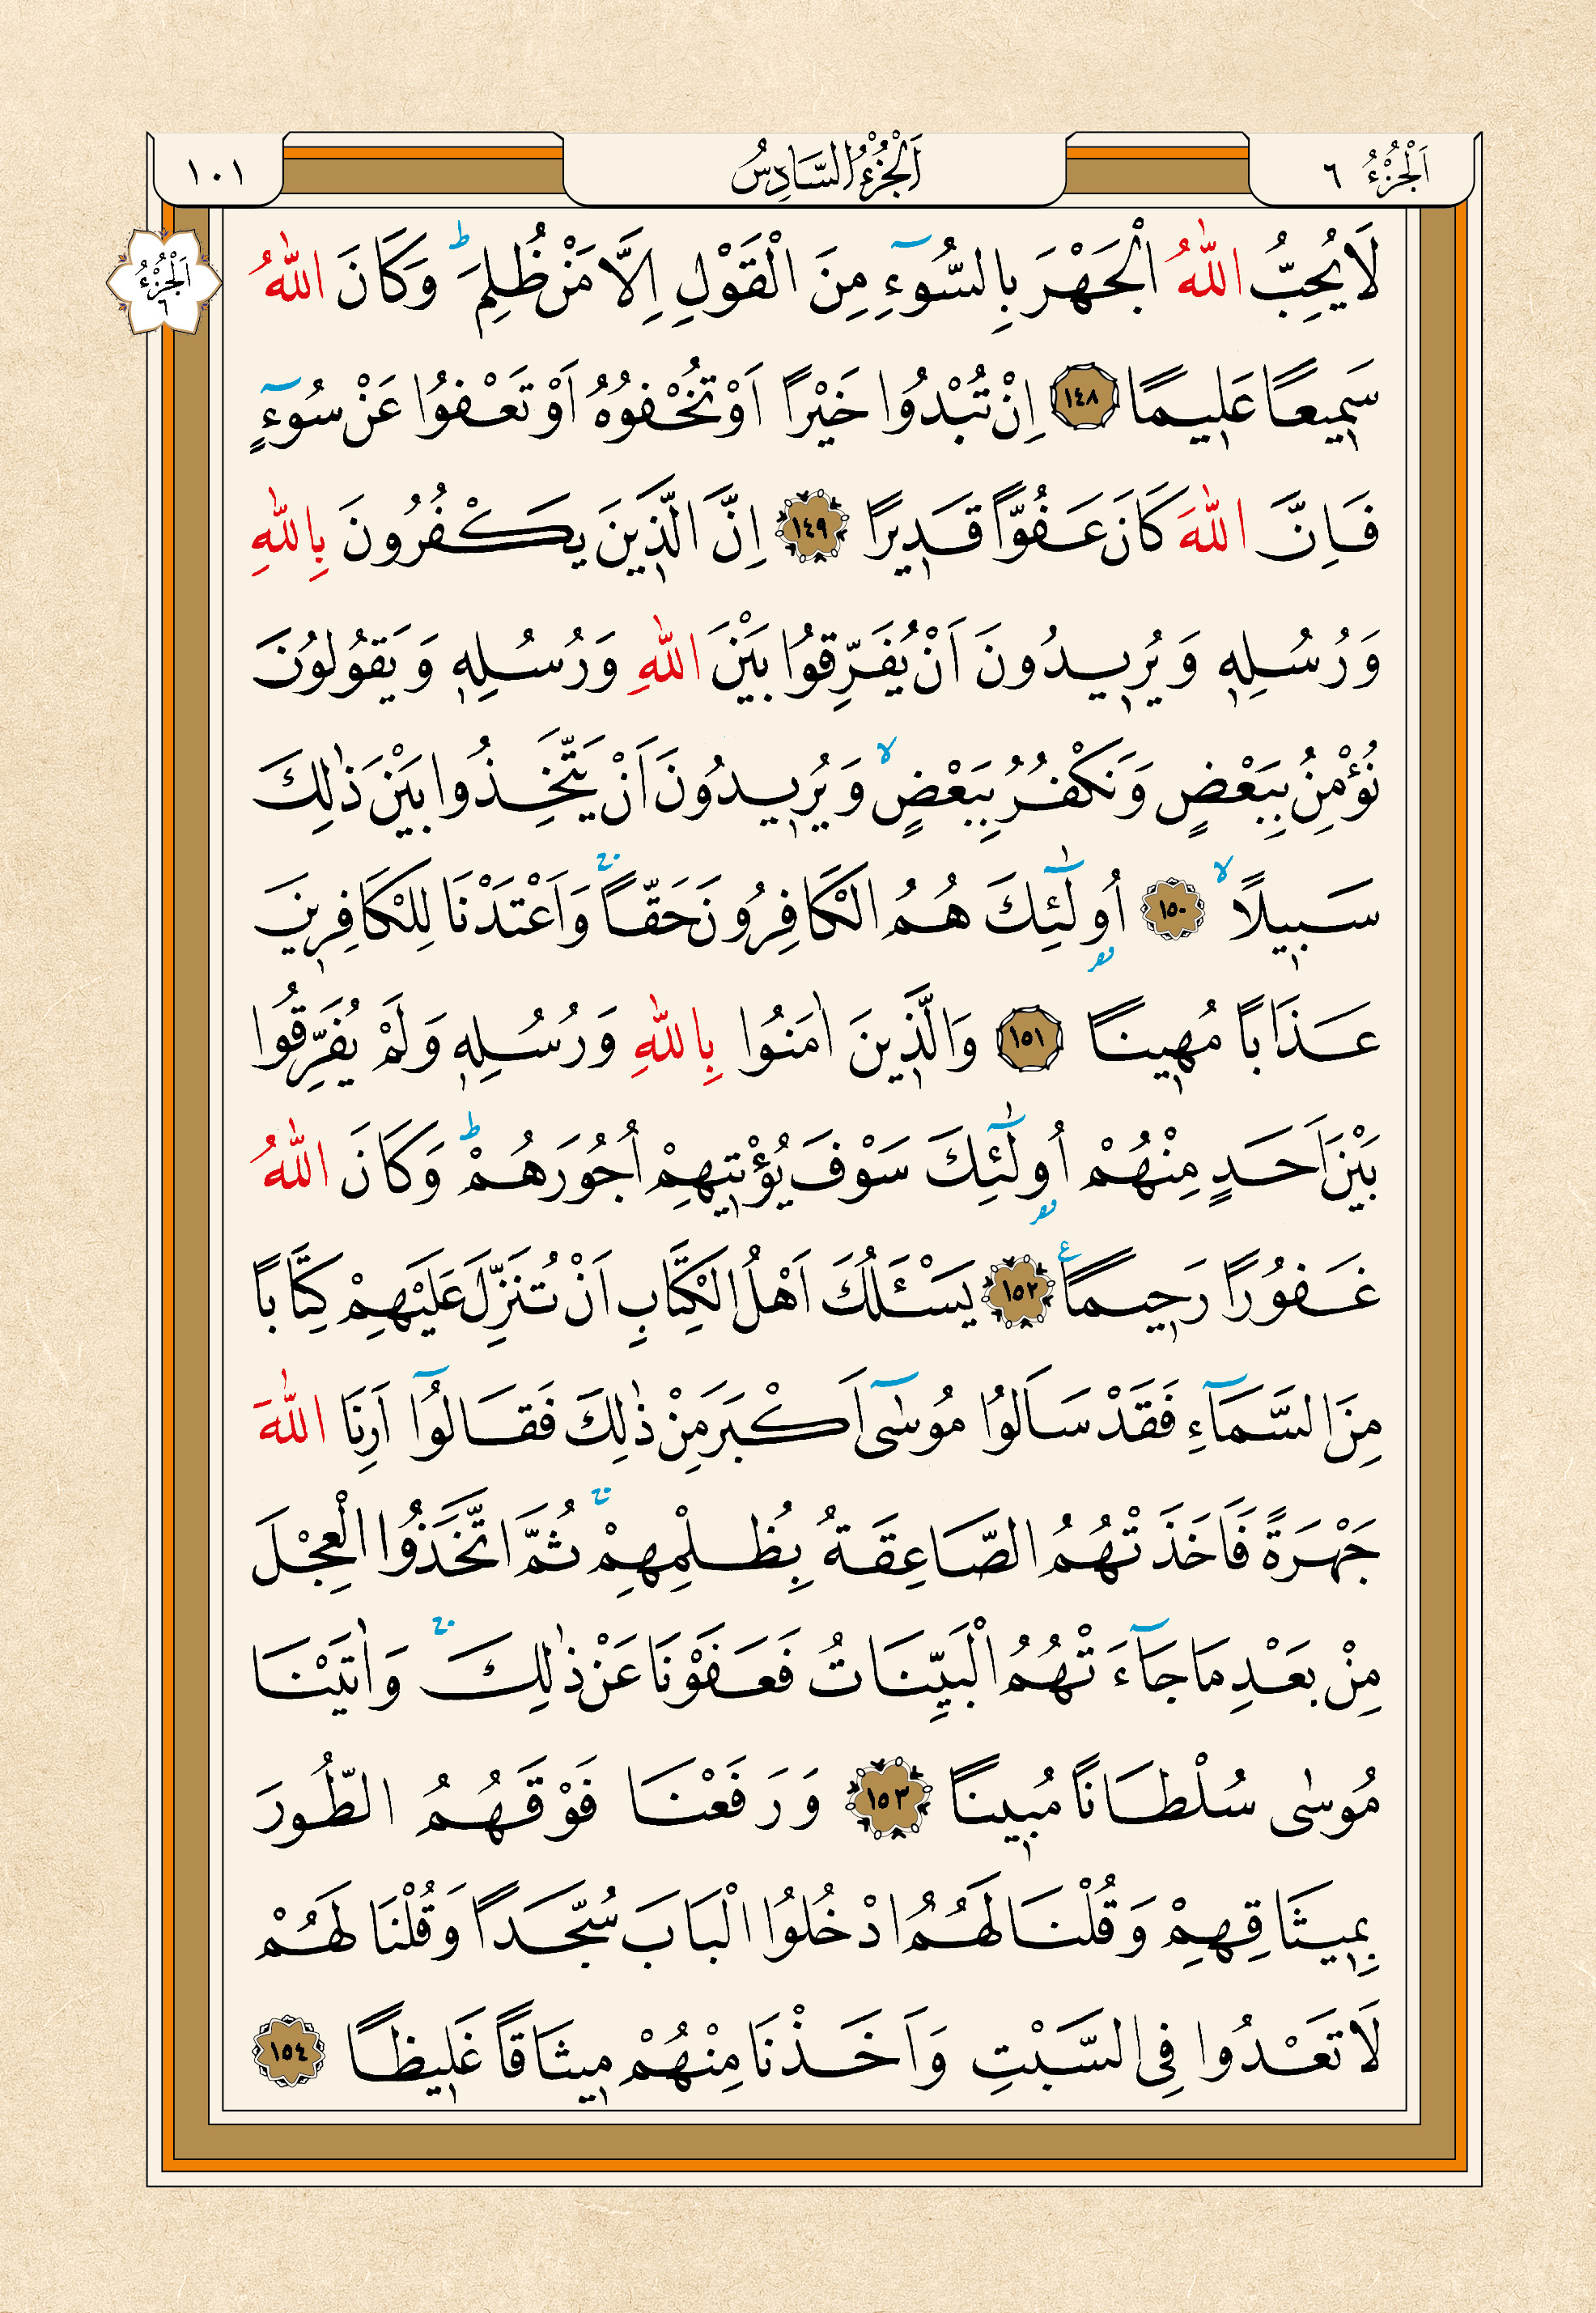 اَلْجُزْءُ ٦
اَلْجُزْءُ السَّادِسُ
١٠١
اَلْجُزْءُ
٦
لَا يُحِبُّ اللّٰهُ الْجَهْرَ بِالسُّوٓءِ مِنَ الْقَوْلِ اِلَّا مَنْ ظُلِمَۜ وَكَانَ اللّٰهُ
سَم۪يعًا عَل۪يمًا ﴿١٤٨﴾ اِنْ تُبْدُوا خَيْرًا اَوْ تُخْفُوهُ اَوْ تَعْفُوا عَنْ سُوٓءٍ
فَاِنَّ اللّٰهَ كَانَ عَفُوًّا قَد۪يرًا ﴿١٤٩﴾ اِنَّ الَّذ۪ينَ يَكْفُرُونَ بِاللّٰهِ
وَرُسُلِه۪ وَيُر۪يدُونَ اَنْ يُفَرِّقُوا بَيْنَ اللّٰهِ وَرُسُلِه۪ وَيَقُولُونَ
نُؤْمِنُ بِبَعْضٍ وَنَكْفُرُ بِبَعْضٍۙ وَيُر۪يدُونَ اَنْ يَتَّخِذُوا بَيْنَ ذٰلِكَ
سَب۪يلًاۙ ﴿١٥٠﴾ اُو۬لٰٓئِكَ هُمُ الْكَافِرُونَ حَقًّاۚ وَاَعْتَدْنَا لِلْكَافِر۪ينَ
عَذَابًا مُه۪ينًا ﴿١٥١﴾ وَالَّذ۪ينَ اٰمَنُوا بِاللّٰهِ وَرُسُلِه۪ وَلَمْ يُفَرِّقُوا
بَيْنَ اَحَدٍ مِنْهُمْ اُو۬لٰٓئِكَ سَوْفَ يُؤْت۪يهِمْ اُجُورَهُمْۜ وَكَانَ اللّٰهُ
غَفُورًا رَح۪يمًا۟ ﴿١٥٢﴾ يَسْـَٔلُكَ اَهْلُ الْكِتَابِ اَنْ تُنَزِّلَ عَلَيْهِمْ كِتَابًا
مِنَ السَّمَٓاءِ فَقَدْ سَاَلُوا مُوسٰٓى اَكْبَرَ مِنْ ذٰلِكَ فَقَالُٓوا اَرِنَا اللّٰهَ
جَهْرَةً فَاَخَذَتْهُمُ الصَّاعِقَةُ بِظُلْمِهِمْۚ ثُمَّ اتَّخَذُوا الْعِجْلَ
مِنْ بَعْدِ مَا جَٓاءَتْهُمُ الْبَيِّنَاتُ فَعَفَوْنَا عَنْ ذٰلِكَۚ وَاٰتَيْنَا
مُوسٰى سُلْطَانًا مُب۪ينًا ﴿١٥٣﴾ وَرَفَعْنَا فَوْقَهُمُ الطُّورَ
بِم۪يثَاقِهِمْ وَقُلْنَا لَهُمُ ادْخُلُوا الْبَابَ سُجَّدًا وَقُلْنَا لَهُمْ
لَا تَعْدُوا فِي السَّبْتِ وَاَخَذْنَا مِنْهُمْ م۪يثَاقًا غَل۪يظًا ﴿١٥٤﴾